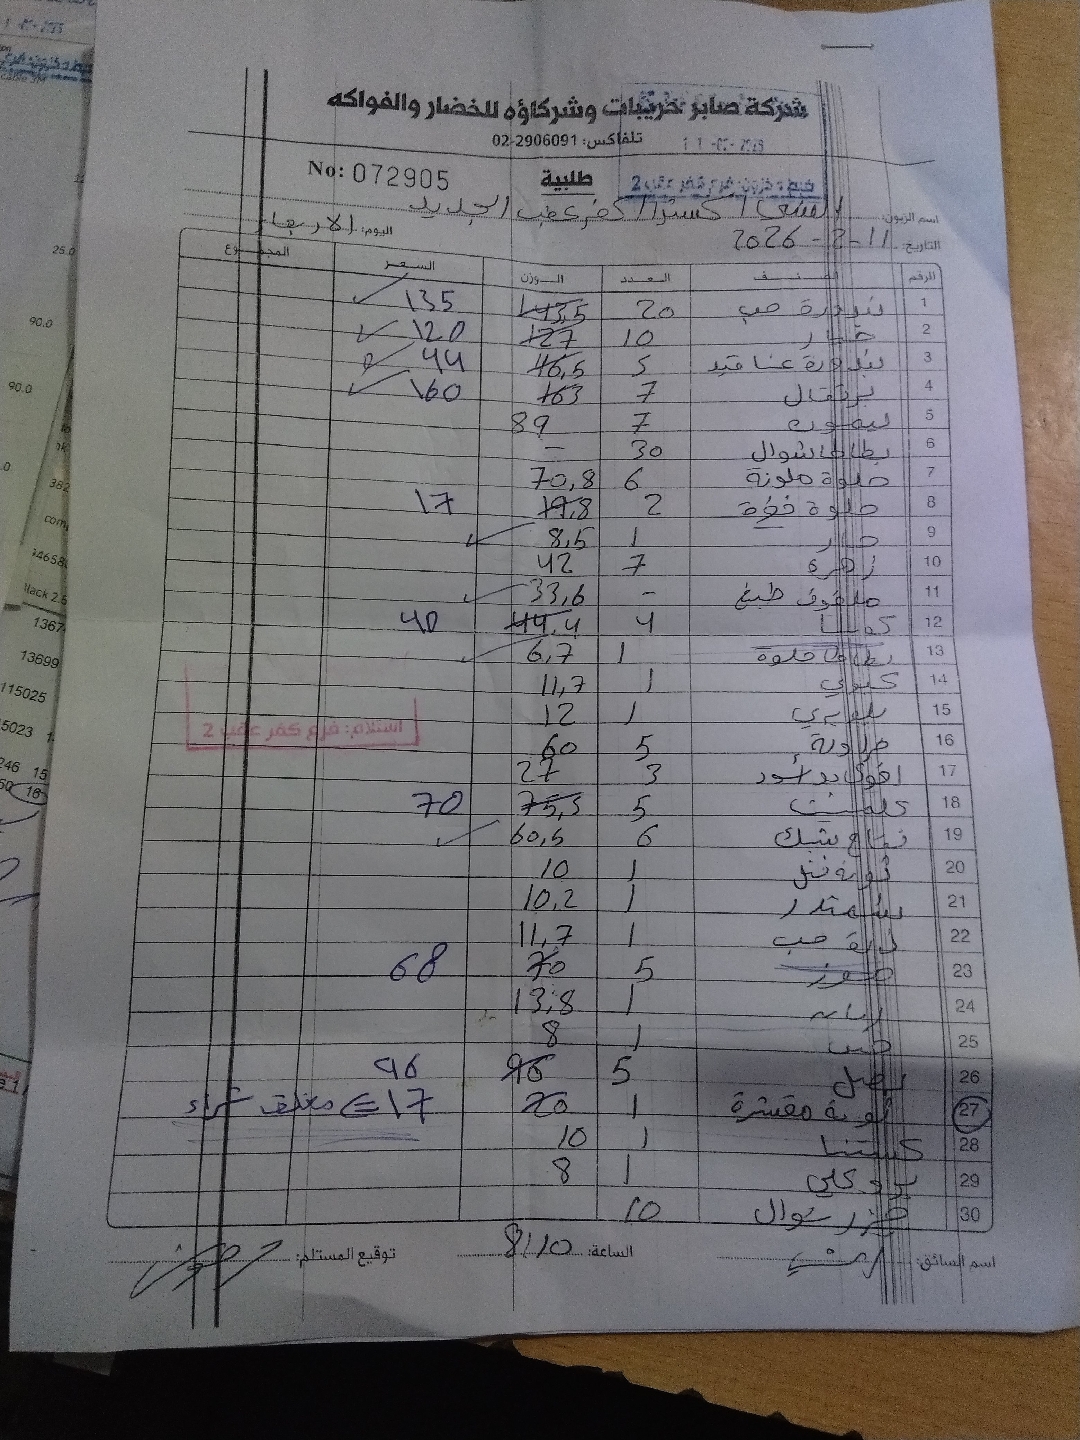 شركة صابر خريبات وشركاؤه للخضار والفواكه
تلفاكس: 02-2906091
No: 072905
طلبية
ضبط مخزون: فرع كفر عقب 2
اسم الزبون: الشني / اكسترا / كفر عقب الجديد
اليوم: الاربعاء
التاريخ: 11-2-2026
الرقم الصنف العدد الوزن السعر المجموع
1 بندورة حب 20 143,5 135
2 خيار 10 127 120
3 بندورة عناقيد 5 46,5 44
4 برتقال 7 163 160
5 ليمون 7 89
6 بطاطا شوال 30 -
7 حلوة ملونة 6 70,8
8 حلوة خضرة 2 19,8 17
9 حار 1 8,5
10 زهرة 7 42
11 ملفوف طبخ - 33,6
12 كوسا 4 44,4 40
13 بطاطا حلوة 1 6,7
14 كيوي 1 11,7
15 1 12
16 فراولة 5 60
17 3 27
18 كلمنتينا 5 75,5 70
19 تفاح شبك 6 60,5
20 1 10
21 شمندر 1 10,2
22 حب 1 11,7
23 موز 5 70 68
24 1 13,8
25 خس 1 8
26 بصل 5 96 96
27 ثومة مقشرة 1 20 17
28 كستنا 1 10
29 بروكلي 1 8
30 جزر شوال 10
استلام: فرع كفر عقب 2
اسم السائق:
الساعة: 8:10
توقيع المستلم: